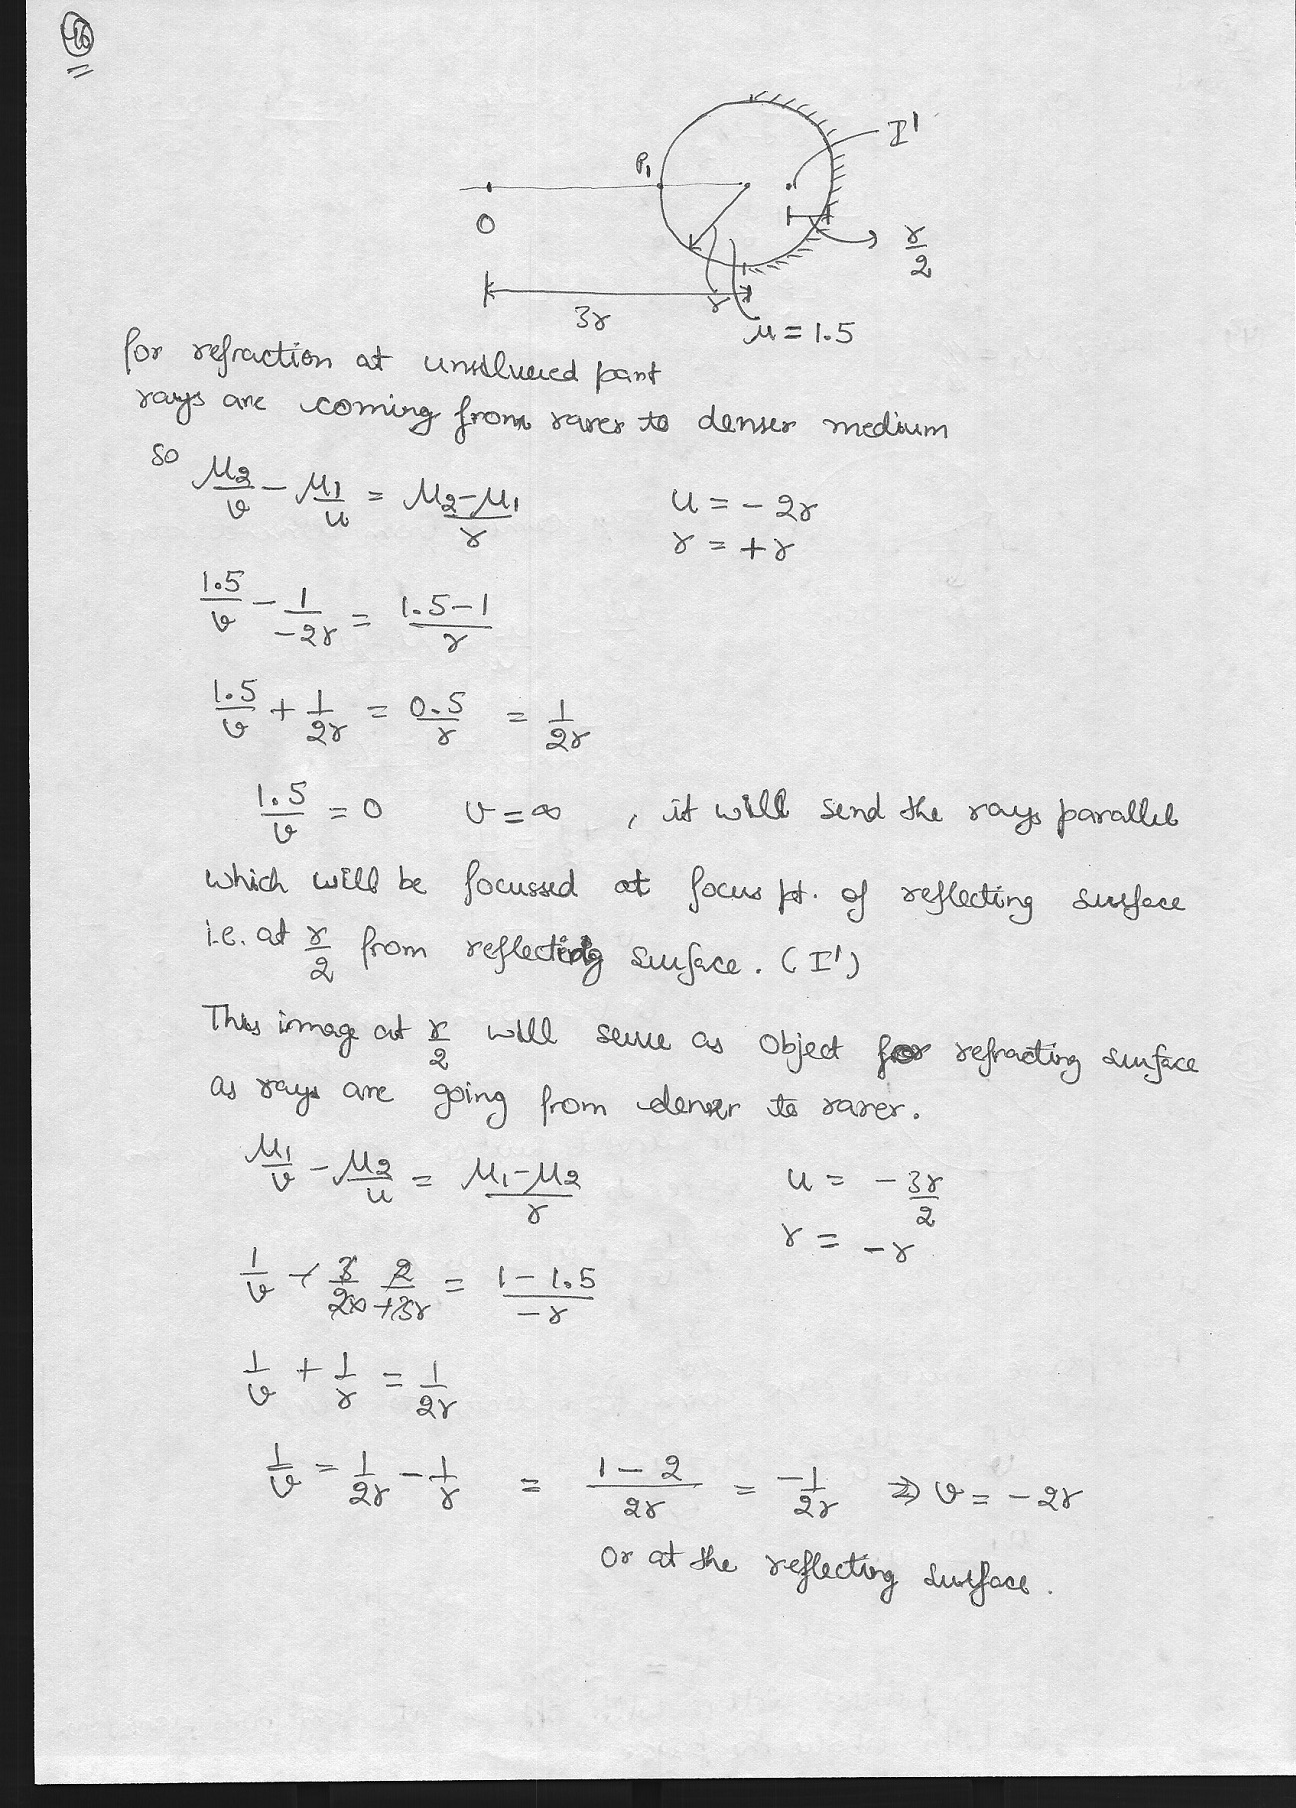 46
P₁
I'
O
r/2
r
3r
μ = 1.5
for refraction at unsilvered part
rays are coming from rarer to denser medium
so μ₂/v − μ₁/u = (μ₂−μ₁)/r   u = −2r
r = +r
1.5/v − 1/−2r = (1.5−1)/r
1.5/v + 1/2r = 0.5/r = 1/2r
1.5/v = 0   v = ∞ , it will send the rays parallel
which will be focussed at focus pt. of reflecting surface
i.e. at r/2 from reflecting surface. (I')
This image at r/2 will serve as object for refracting surface
as rays are going from denser to rarer.
μ₁/v − μ₂/u = (μ₁−μ₂)/r   u = −3r/2
r = −r
1/v + 3/2 × 2/+3r = (1−1.5)/−r
1/v + 1/r = 1/2r
1/v = 1/2r − 1/r = (1−2)/2r = −1/2r ⇒ v = −2r
or at the reflecting surface.